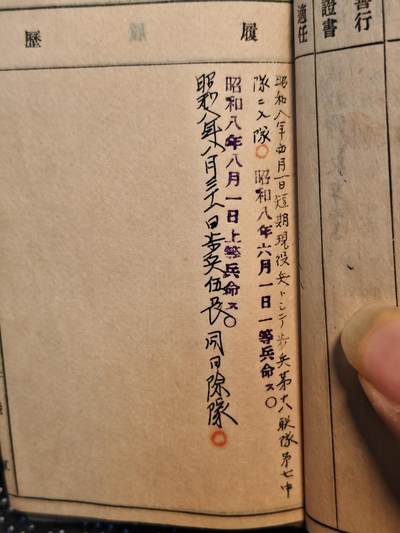 善行
證書
適任
履歷
昭和八年四月一日短期現役兵トシテ歩兵第十八聯隊第七中
隊ニ入隊○昭和八年六月一日一等兵命ス○
昭和八年八月一日上等兵命ス○
昭和八年八月三十一日歩兵伍長同日除隊○